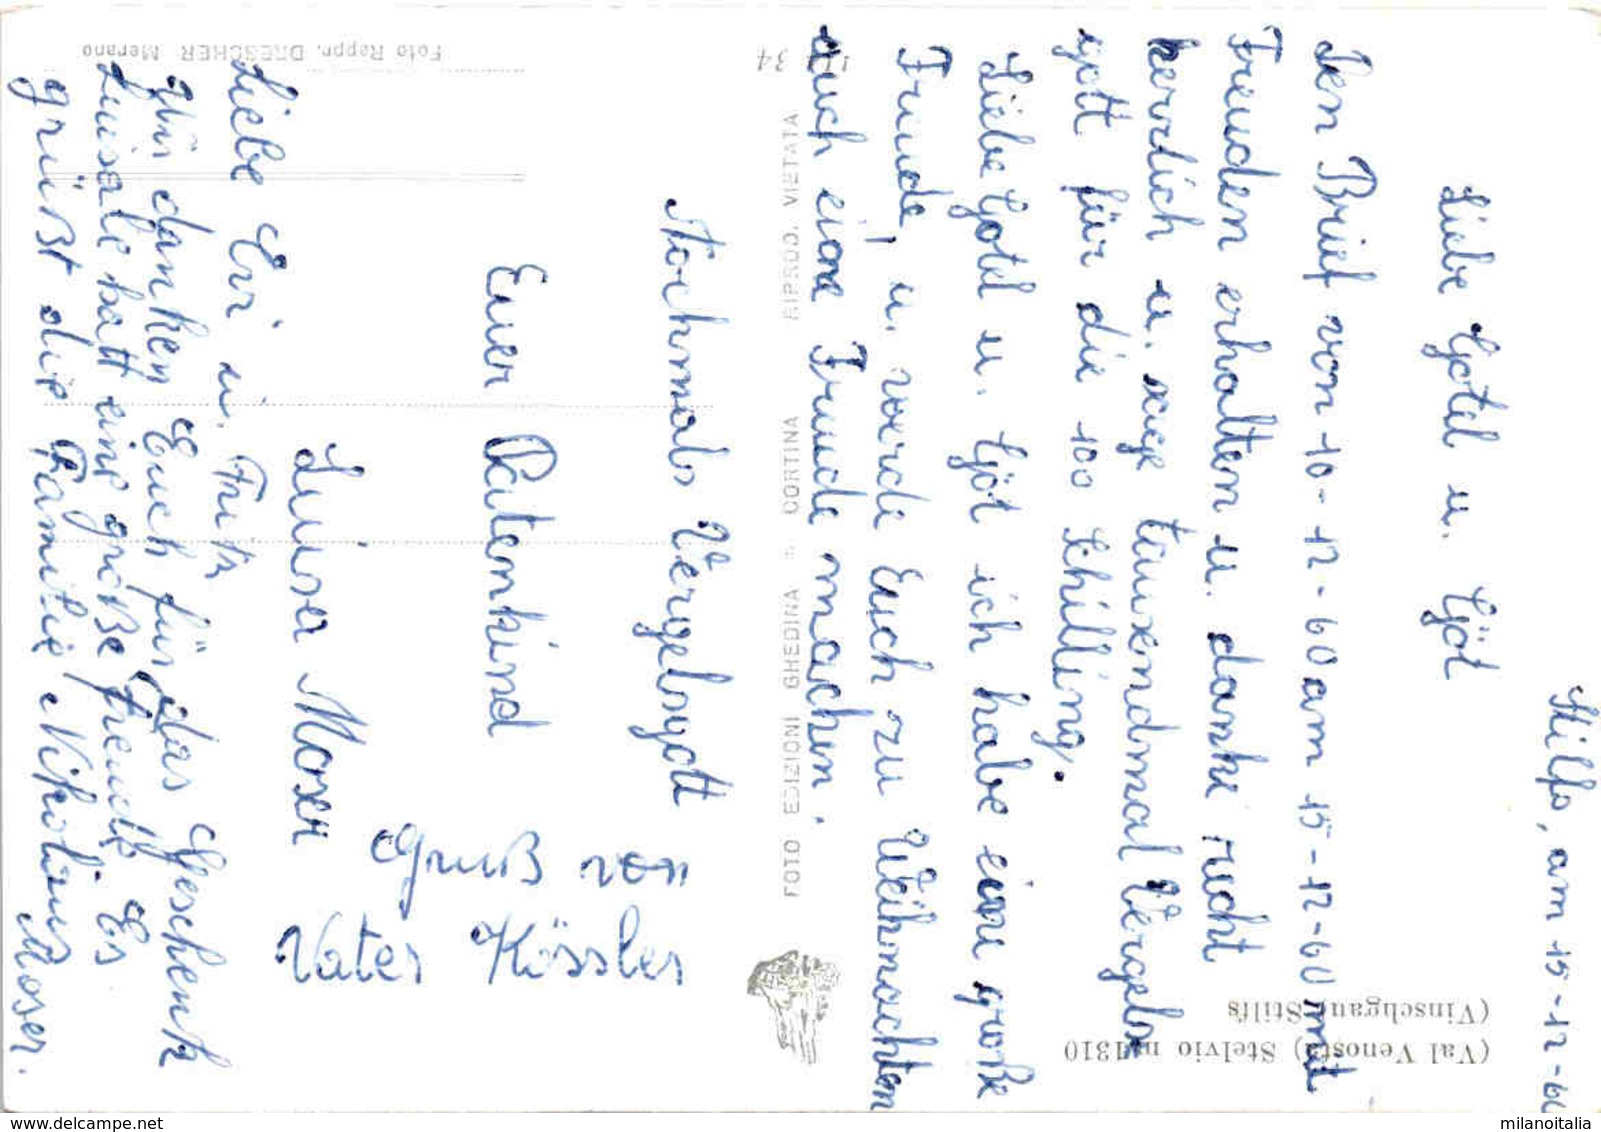 Stilfs, am 15-12-60
Liebe Gotel u. Göt
Den Brief von 10-12-60 am 15-12-60 mit
Freuden erhalten u. danke recht
herzlich u. sage tausendmal Vergels
gott für die 100 Schilling.
Liebe Gotel u. Göt ich habe eine große
Freude, u. werde Euch zu Weihnachten
auch eine Freude machen.
Nochmals Vergelsgott
Euer Patenkind
Luisa Moser
Gruß von
Vater Kössler
Liebe Evi u. Fritz
Wir danken Euch für das Geschenk
Luisale hatt eine große Freude Es
grüßt die Familie Nikolaus
Moser.
(Val Venosta) Stelvio m. 1310
(Vinschgau) Stilfs
FOTO EDIZIONI GHEDINA - CORTINA RIPROD. VIETATA
34
Foto Reppr. DRESCHER Merano
milanoitalia